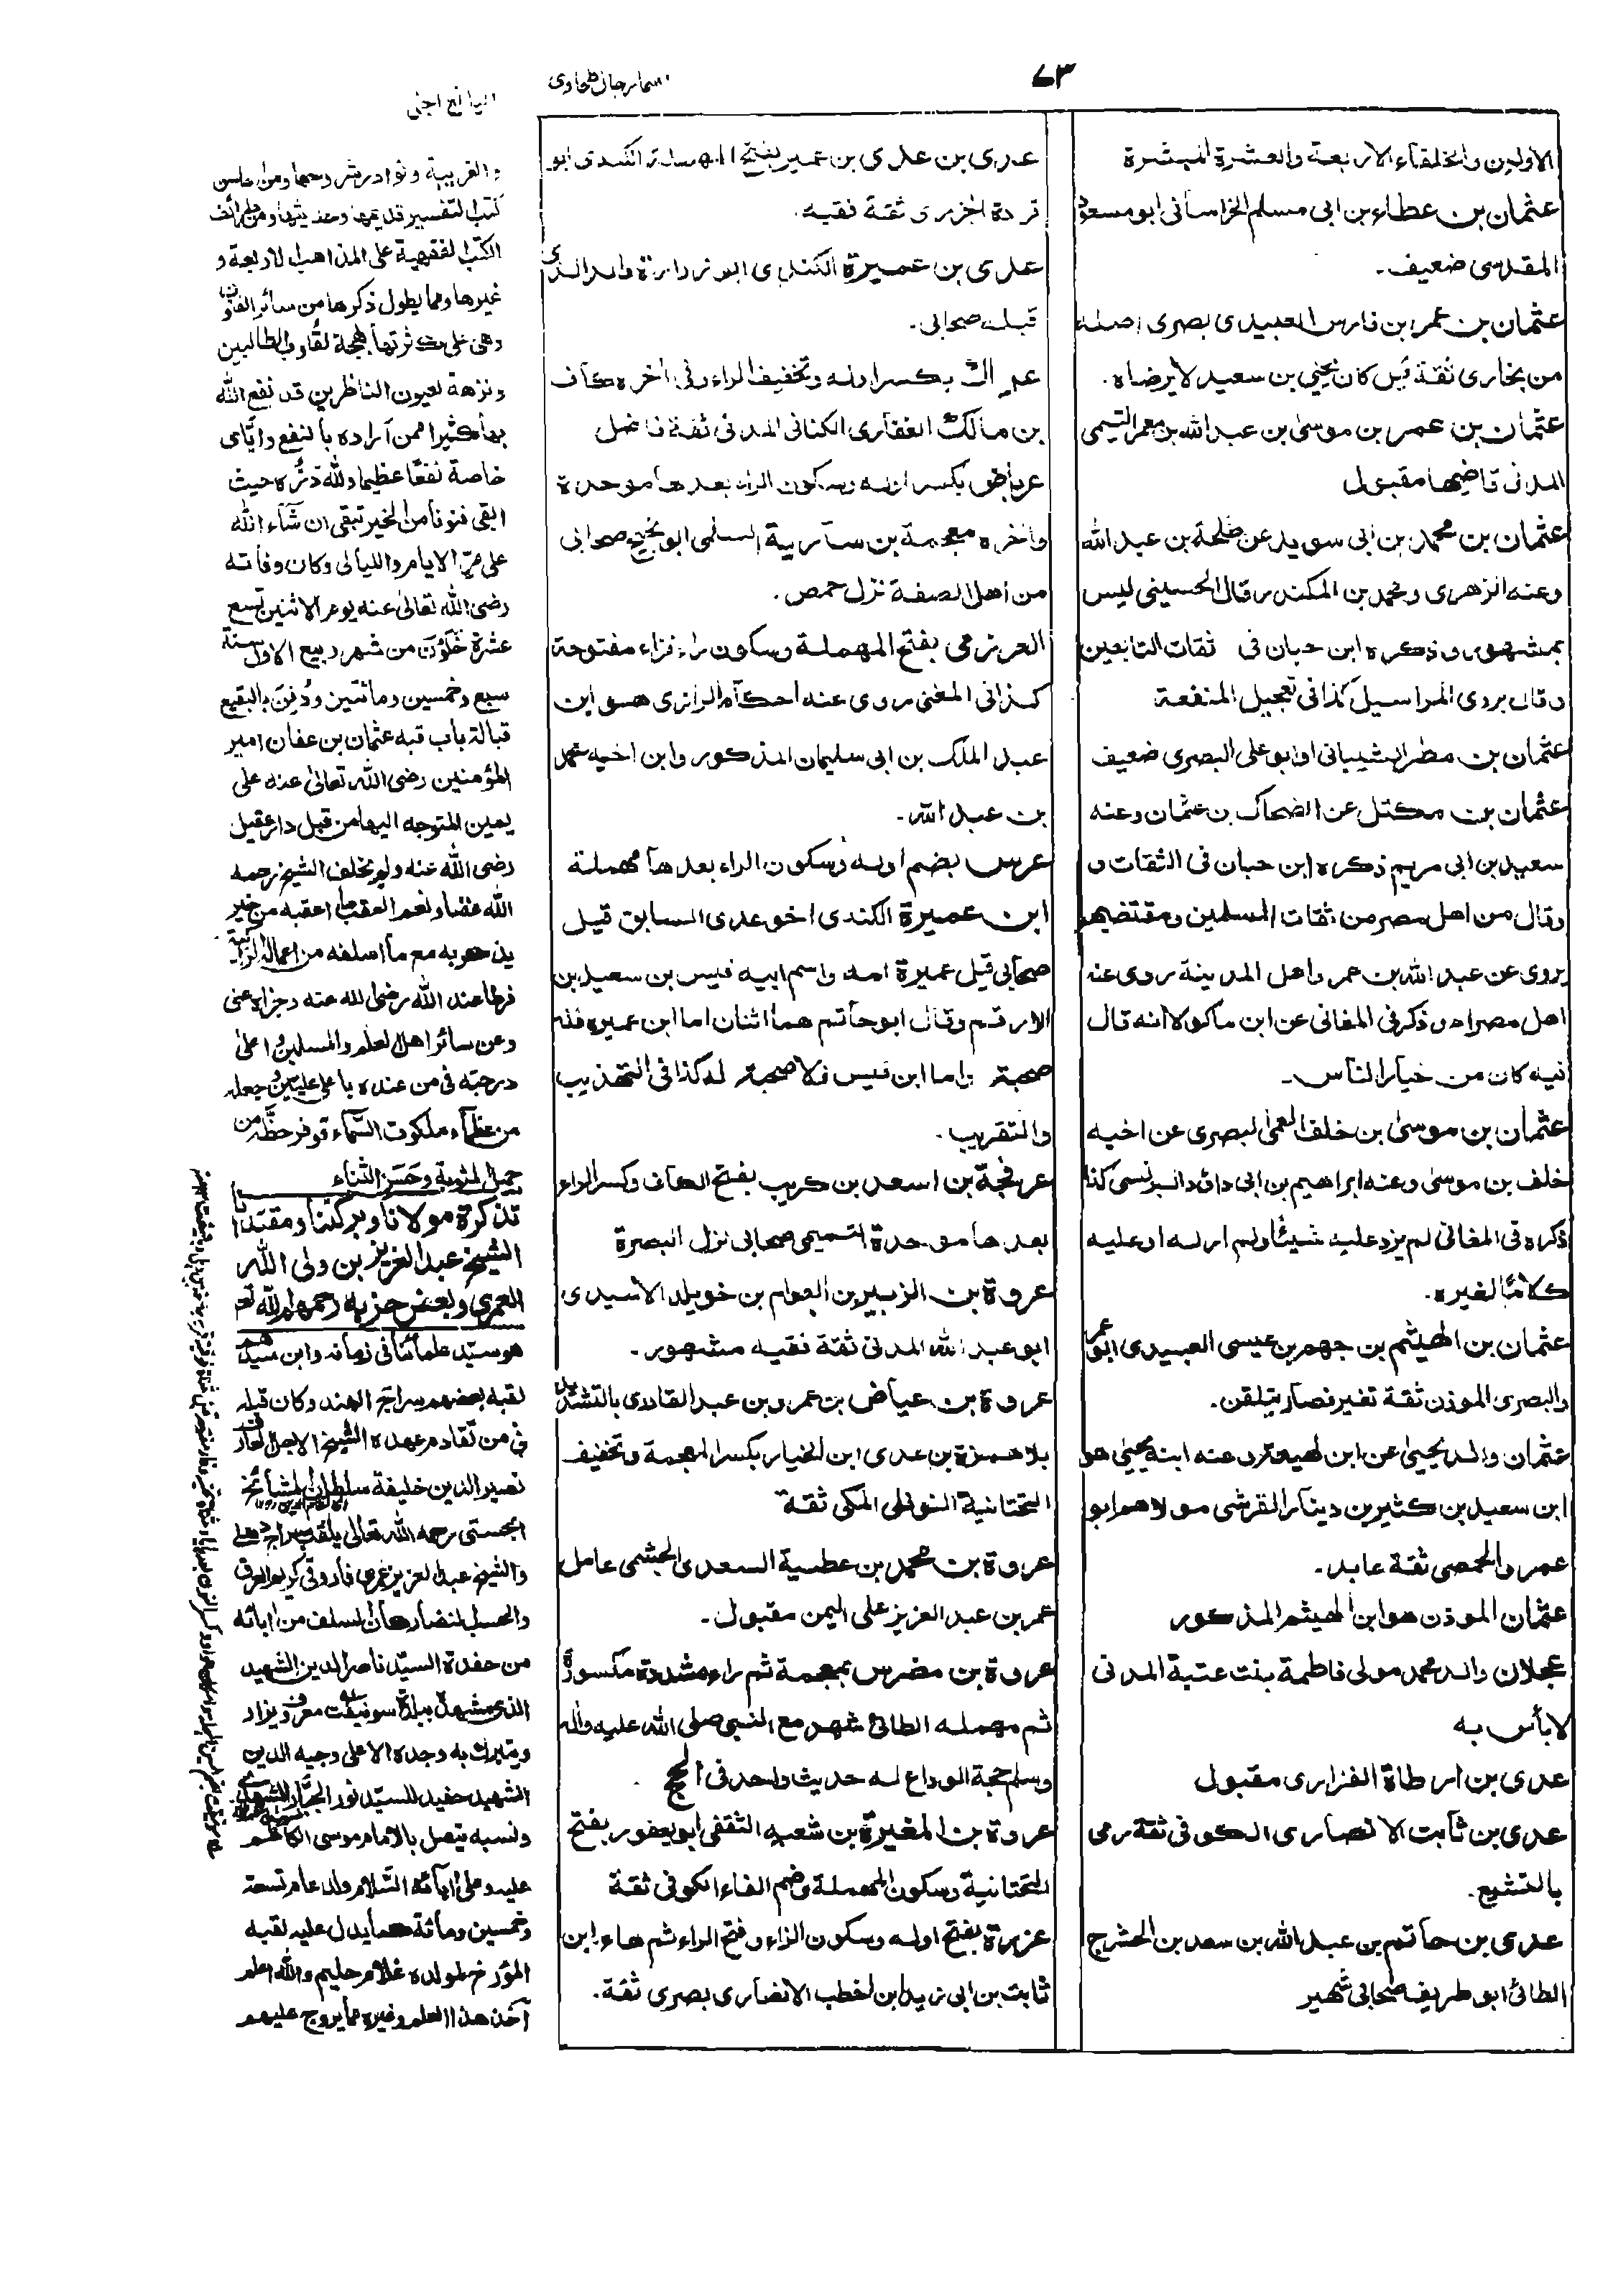 ٧٣
اسماء رجال طحاوى
اليانع الجنى
الاولين والخلفاء الاربعة والعشرة المبشرة
عثمان بن عطاء بن ابى مسلم الخراسانى ابو مسعود
المقدسى ضعيف۔
عثمان بن عمر بن فارس العبيدى بصرى اصله
من بخارى ثقة قيل كان يحيى بن سعيد لا يرضاه۔
عثمان بن عمر بن موسى بن عبد الله بن معمر التيمى
المدنى قاضيها مقبول
عثمان بن محمد بن ابى سويد عن طلحة بن عبد الله
وعنه الزهرى ومحمد بن المكندر قال الحسينى ليس
بمشهور وذكره ابن حبان فى ثقات التابعين
وقال يروى المراسيل كذا فى تعجيل المنفعة
عثمان بن مطر الشيبانى او ابو على البصرى ضعيف
عثمان بن مكتل عن الضحاك بن عثمان وعنه
سعيد بن ابى مريم ذكره ابن حبان فى الثقات و
وقال من اهل مصر من ثقات المسلمين ومقتضيهم
يروى عن عبد الله بن عمر واهل المدينة روى عنه
اهل مصر اه وذكر فى المغانى عن ابن ماكولا انه قال
فيه كان من خيار الناس۔
عثمان بن موسى بن خلف العمى البصرى عن اخيه
خلف بن موسى وعنه ابراهيم بن ابى داؤد البرنسى كذا
ذكره فى المغانى لم يزد عليه شيئا ولم ار له او عليه
كلامًا لغيره۔
عثمان بن الهيثم بن جهم بن عيسى العبيدى ابو عمر
والبصرى الموذن ثقة تغير فصار يتلقن۔
عثمان والد يحيى عن ابن لهيعة وعنه ابنه يحيى هو
ابن سعيد بن كثير بن دينار القرشى مولاهم ابو
عمر والحمصى ثقة عابد۔
عثمان الموذن هو ابن الهيثم المذكور
عجلان والد محمد مولى فاطمة بنت عتبة المدنى
لا بأس به
عدى بن ارطاة الفزارى مقبول
عدى بن ثابت الانصارى الكوفى ثقة رمى
بالتشيع۔
عدى بن حاتم بن عبد الله بن سعد بن الحشرج
الطائى ابو طريف صحابى شهير
عدى بن عدى بن عمير بفتح المهملة الكندى ابو
فردة الجزرى ثقة فقيه۔
عدى بن عميرة الكندى ابو زرارة والد الذى
قبله صحابى۔
عراك بكسر اوله وتخفيف الراء وفى اخره كاف
بن مالك الغفارى الكنانى المدنى ثقة فاضل
عرباض بكسر اوله وسكون الراء بعدها موحدة
واخره معجمة بن سارية السلمى ابو نجيح صحابى
من اهل الصفة نزل حمص۔
العرزمى بفتح المهملة وسكون راء فزاء مفتوحة
كذا فى المغنى روى عنه احكام الرازى هو ابن
عبد الملك بن ابى سليمان المذكور وابن اخيه محمد
بن عبد الله۔
عرس بضم اوله وسكون الراء بعدها مهملة
ابن عميرة الكندى اخو عدى السابق قيل
صحابى قيل عميرة امه واسم ابيه قيس بن سعيد بن
الارقم وقال ابو حاتم هما اثنان اما ابن عميره فله
صحبة واما ابن قيس فلا صحبة له كذا فى التهذيب
والتقريب۔
عرفجة بن اسعد بن كريب بفتح الكاف وكسر الراء
بعدها موحدة التميمى صحابى نزل البصرة
عروة بن الزبير بن العوام بن خويلد الاسيدى
ابو عبد الله المدنى ثقة فقيه مشهور۔
عروة بن عياض بن عمرو بن عبد القادى بالتشديد
بلا همزة بن عدى ابن الخيار بكسر المعجمة وتخفيف
التحتانية النوفلى المكى ثقة
عروة بن محمد بن عطية السعدى الجشمى عامل
عمر بن عبد العزيز على اليمن مقبول۔
عروة بن مضرس بمعجمة ثم راء مشددة مكسورة
ثم مهمله الطائى شهد مع النبى صلى الله عليه واله
وسلم حجة الوداع له حديث واحد فى الحج
عروة بن المغيرة بن شعبه الثقفى ابو يعفور بفتح
التحتانية وسكون المهملة وضم الفاء الكوفى ثقة
عزرة بفتح اوله وسكون الزاء وفتح الراء ثم هاء ابن
ثابت بن ابى زيد ابن اخطب الانصارى بصرى ثقة۔
والغريبة ونوادر شروحها ومن محاسن
كتب التفسير قديمها وحديثها ومن طرائف
الكتب الفقهية على المذاهب الاربعة و
غيرها ومما يطول ذكرها من سائر الفنون
وهى على كثرتها بهجة لقلوب الطالبين
ونزهة لعيون الناظرين قد نفع الله
بها كثيرا ممن اراده بالنفع وايّاى
خاصة نفعًا عظيما ولله درّه حيث
ابقى فنونا من الخير تبقى ان شاء الله
على مرّ الايام والليالى وكان وفاته
رضى الله تعالىٰ عنه يوم الاثنين لتسع
عشرة خَلَوْنَ من شهر ربيع الاول سنة
سبع وخمسين ومائتين ودُفِنَ بالبقيع
قبالة باب قبة عثمان بن عفان امير
المؤمنين رضى الله تعالىٰ عنه على
يمين المتوجه اليها من قبل دار عقيل
رضى الله عنه ولم يخلف الشيخ رحمه
الله عقبا ولنعم العقب ما اعقبه من خير
يذهب به مع ما اسلفه من اعماله الزاكية
فرطا عند الله رضى الله عنه وجزاه عنى
وعن سائر اهل العلم والمسلمين واعلى
درجته فى من عنده باعلى عليين وجعله
من عظماء ملكوت السّماء توفر حظّه من
جميل المثوبة وحَسَن الثناء
تذكرة مولانا وبركتنا ومقتدانا
الشيخ عبد العزيز بن ولى الله
العمرى وبعض حزبه رحمهم الله تعـ
هو سيّد علمائنا فى زمانه وابن سيّدهم
لقبه بعضهم سراج الهند وكان قبله
فى من تقادم عهده الشيخ الاجل العارف
نصير الدين خليفة سلطان المشائخ
الجستى رحمه الله تعالى يلقب سراج دهلى
والشيخ عبد العزيز عمرى فاروقى كريم العرق
والحسب لنضارهان السلف من ابائه
من حفدة السيّد ناصر الدين الشهيد
الذى مشهده ببلدة سونيفت معروف ويزار
ويتبرك به وجده الاعلى وجيه الدين
الشهيد حفيد للسيّد نور الجبّار المشهدى
ونسبه يتصل بالامام موسى الكاظم
عليه وعلى ابائه السّلام ولد عام تسعة
وخمسين ومائة كما يدل عليه لقبه
المؤرخ لمولده غلام حليم والله اعلم
آخذ هذا العلم وغيره مما يروج عليهم